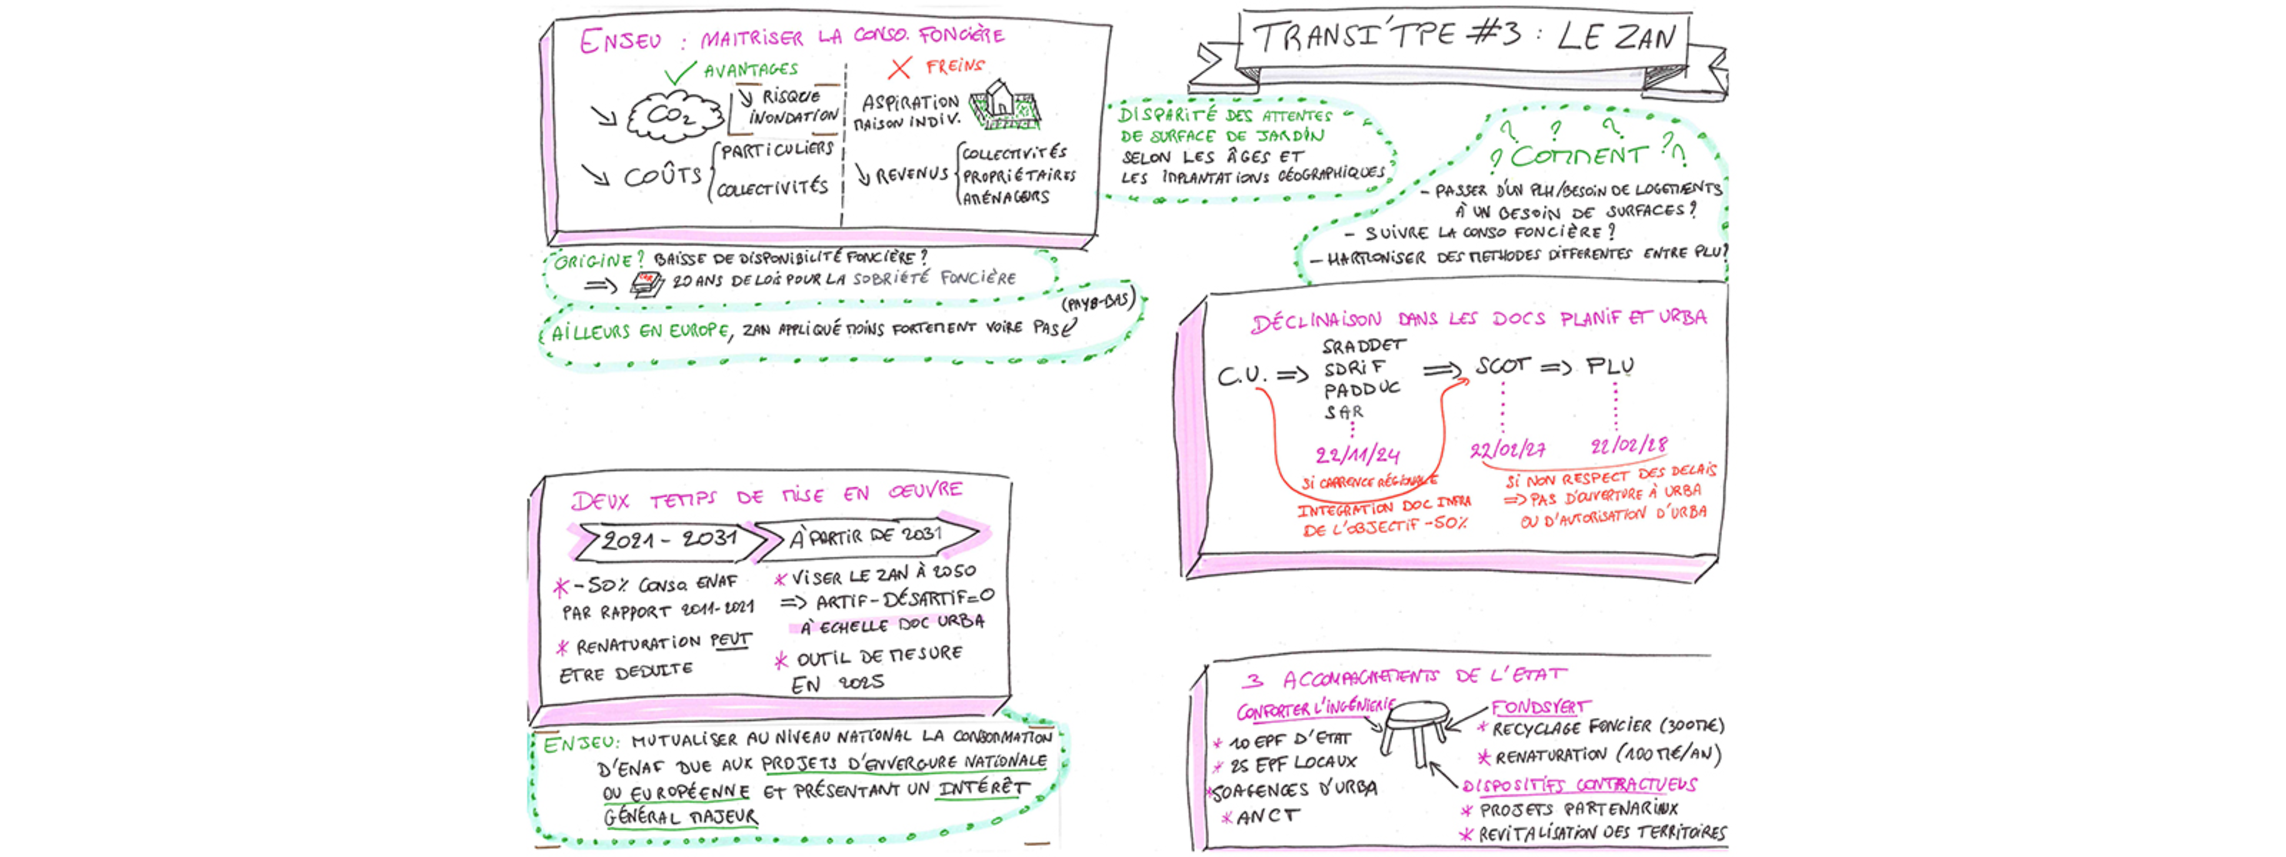 TRANSI'TPE #3 : LE ZAN
ENJEU : MAITRISER LA CONSO. FONCIÈRE
AVANTAGES
↘ CO2
↘ RISQUE
INONDATION
↘ COÛTS
PARTICULIERS
COLLECTIVITÉS
FREINS
ASPIRATION
MAISON INDIV.
↘ REVENUS
COLLECTIVITÉS
PROPRIÉTAIRES
AMÉNAGEURS
DISPARITÉ DES ATTENTES
DE SURFACE DE JARDIN
SELON LES ÂGES ET
LES IMPLANTATIONS GÉOGRAPHIQUES
? ? ? ?
? COMMENT ? ?
- PASSER D'UN PLH/BESOIN DE LOGEMENTS
À UN BESOIN DE SURFACES ?
- SUIVRE LA CONSO FONCIÈRE ?
- HARMONISER DES METHODES DIFFERENTES ENTRE PLU ?
ORIGINE ? BAISSE DE DISPONIBILITÉ FONCIÈRE ?
⇒ 20 ANS DE LOIS POUR LA SOBRIÉTÉ FONCIÈRE
(PAYS-BAS)
AILLEURS EN EUROPE, ZAN APPLIQUÉ MOINS FORTEMENT VOIRE PAS
DÉCLINAISON DANS LES DOCS PLANIF ET URBA
C.U. ⇒
SRADDET
SDRIF
PADDUC
SAR
⇒ SCOT ⇒ PLU
22/11/24
22/02/27
22/02/28
SI CARRENCE RÉGIONALE
INTEGRATION DOC INFRA
DE L'OBJECTIF -50%
SI NON RESPECT DES DELAIS
⇒ PAS D'OUVERTURE À URBA
OU D'AUTORISATION D'URBA
DEUX TEMPS DE MISE EN OEUVRE
2021 - 2031
* -50% CONSO. ENAF
PAR RAPPORT 2011-2021
* RENATURATION PEUT
ETRE DEDUITE
À PARTIR DE 2031
* VISER LE ZAN À 2050
⇒ ARTIF-DÉSARTIF=0
À ECHELLE DOC URBA
* OUTIL DE MESURE
EN 2025
ENJEU : MUTUALISER AU NIVEAU NATIONAL LA CONSOMMATION
D'ENAF DUE AUX PROJETS D'ENVERGURE NATIONALE
OU EUROPÉENNE ET PRÉSENTANT UN INTÉRÊT
GÉNÉRAL MAJEUR
3 ACCOMPAGNEMENTS DE L'ETAT
CONFORTER L'INGÉNIERIE
* 10 EPF D'ETAT
* 25 EPF LOCAUX
* 50 AGENCES D'URBA
* ANCT
FONDS VERT
* RECYCLAGE FONCIER (300M€)
* RENATURATION (100M€/AN)
DISPOSITIFS CONTRACTUELS
* PROJETS PARTENARIAUX
* REVITALISATION DES TERRITOIRES